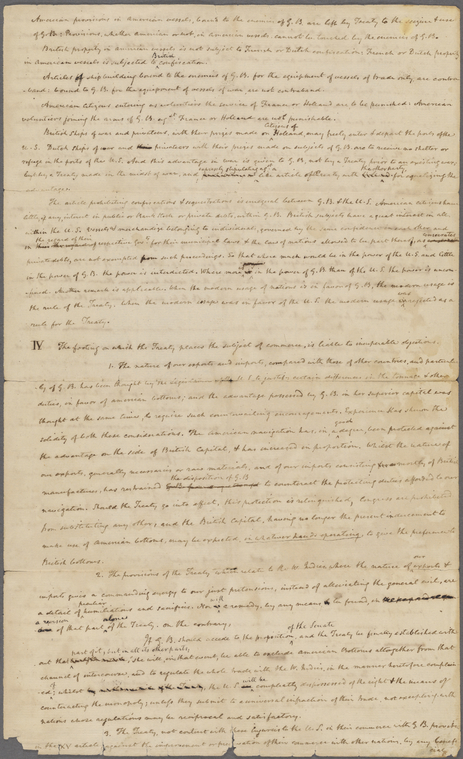 American provisions in American vessels, bound to the enemies of G.B. are left by Treaty to the
of G.B. Provisions, whether American or not, in American vessels cannot be touched by the enemies of G.B.
British property in American vessels is not subject to French or Dutch confiscation. French or Dutch property
in American vessels is subjected to British confiscation.
Articles of shipbuilding bound to the enemies of G.B. for the equipment of vessels of trade only are contra
band: bound to G.B. for the equipment of vessels of war are not contraband.
American citizens entering as volunteers the service of France or Holland are to be punished: American
volunteers joining the arms of G.B. agst. France or Holland are not punishable.
British Ships of war and privateers, with their prizes made on citizens of Holland, may freely enter & depart the ports of the
U.S. Dutch ships of war and privateers with their prizes made on subjects of G.B. are to receive no shelter or
refuge in the ports of the U.S. And this advantage in war is given to G.B. not by a Treaty prior to an existing war,
but by a Treaty made in the midst of war, and like article of Treaty with for equalizing the
advantage.
The article prohibiting confiscations & sequestrations is unequal between G.B. & the U.S. American citizens have
little, if any interest in public or Bank stock or private debts, within G.B. British subjects have a great interest in all
within the U.S. Vessels & merchandize belonging to individuals, governed by the same confidence
their municipal laws & the law of nations allowed to be part thereof, as
private debts, are not exempted from such proceedings. So that where much would be in the power of the U.S. and little
in the power of G.B. the power is interdicted. Where more is in the power of G.B. than of the U.S. the power is uncon
fined. Another remark is applicable. When the modern usage of nations is in favor of G.B. the modern usage is
the rule of the Treaty. When the modern usage was in favor of the U.S. the modern usage was rejected as a
rule for the Treaty.
IV The footing on which the Treaty places the subject of commerce, is liable to insuperable objections.
1. The nature of our exports and imports, compared with those of other countries, and particular
ly of G.B. has been thought by the to justify certain differences in the tonnage & other
duties, in favor of American bottoms; and the advantage possessed by G.B. in her superior capital was
thought at the same time, to require such countervailing encouragements. Experience has shewn the
solidity of both these considerations. The American navigation has, in a good degree, been protected against
the advantage on the side of British Capital, & has increased in proportion. Whilst the nature of
our exports, generally necessaries or raw materials, and of our imports consisting mostly of British
manufactures, has restrained the disposition of G.B. to counteract the protecting duties afforded to our
navigation. Should the Treaty go into effect, this protection is relinquished; Congress are prohibited
from substituting any other; and the British Capital, having no longer the present inducement to
make use of American bottoms, may be expected, in whatever hands operating, to give the preference to
British bottoms.
2. The provisions of the Treaty which relate to the W. Indies, where the nature of our exports &
imports gives a commanding energy to our just pretensions, instead of alleviating the general evil, are
a detail of peculiar humiliations and sacrifices. Nor is a remedy, by any means to be found in
a revision of that part alone of the Treaty. On the contrary,
If G.B. should accede to the proposition of the Senate, and the Treaty be finally established with
out that part of it, but in all its other parts, she will, in that event, be able to exclude American Bottoms altogether from that
channel of intercourse, and to regulate the whole trade with the W. Indies, in the manner heretofore complain
ed of; whilst the U.S. will be completely dispossessed of the right & the means of
counteracting the monopoly; unless they submit to a universal infraction of their trade, not excepting with
nations whose regulations may be reciprocal and satisfactory.
3. The Treaty, not content with these injuries to the U.S. in their commerce with G.B. provides
in the XV article against the improvement or preservation of their commerce with other nations, by any benefi
cial